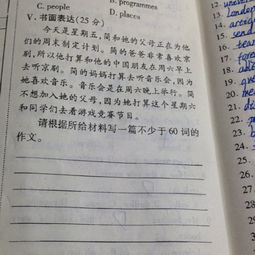 C. people
B. programmes
D. places
V. 书面表达(25 分)
今天是星期五,简和她的父母正在为他
们的周末制定计划。简的爸爸非常喜欢京
剧,所以他打算和他的中国朋友在周六早上
去听京剧。简的妈妈打算去听音乐会,因为
她喜欢音乐。音乐会是在周六晚上举行。简
不想加入她的父母,因为她打算这个星期六
和同学们去看游戏竞赛节目。
请根据所给材料写一篇不少于 60 词的
作文。
12.
13. London
14.
15. send
16. tea
17. fore
18.
19.
20. me
21. di
22.
23. b
24.
25.
26.